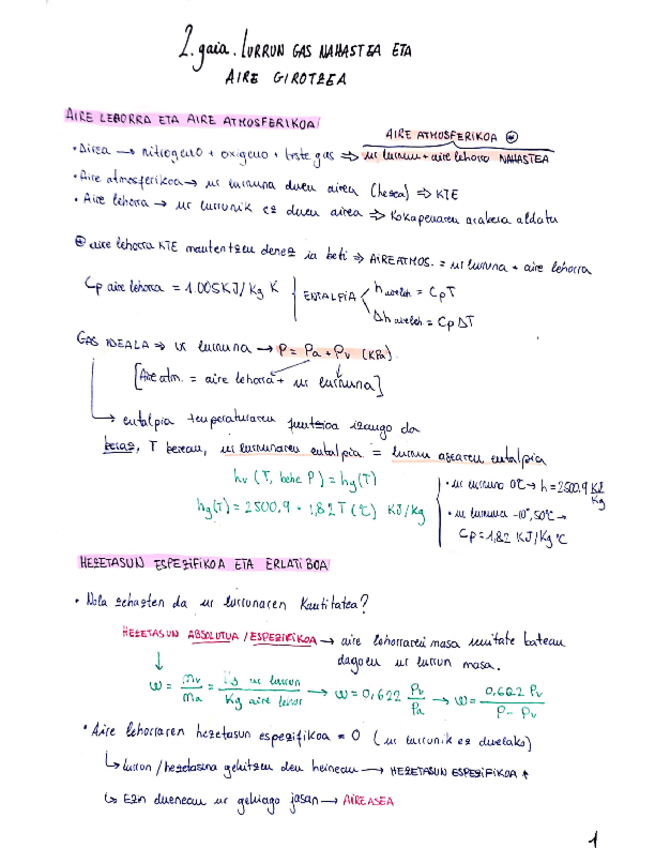 2. gaia. LURRUN GAS NAHASTEA ETA
AIRE GIROTZEA
AIRE LEHORRA ETA AIRE ATMOSFERIKOA
AIRE ATMOSFERIKOA ⊛
• Airea → nitrogeno + oxigeno + beste gas ⇒ ur lurrun + aire lehorra NAHASTEA
• Aire atmosferikoa → ur lurruna duen airea (hezea) ⇒ KTE
• Aire lehorra → ur lurrunik ez duen airea ⇒ Kokapenaren arabera aldatu
⊛ aire lehorra KTE mantentzen denez ia beti ⇒ AIRE ATMOS. = ur lurruna + aire lehorra
Cp aire lehorra = 1.005 KJ/Kg K
ENTALPIA
h aireleh = CpT
Δh aireleh = Cp ΔT
GAS IDEALA ⇒ ur lurruna → P = Pa + Pv (KPa)
[Aire atm. = aire lehorra + ur lurruna]
→ entalpia tenperaturaren funtzioa izango da
beraz, T berean, ur lurrunaren entalpia = lurrun asearen entalpia
hv (T, behe P) = hg(T)
hg(T) = 2500,9 + 1,82 T (℃) KJ/Kg
• ur lurruna 0℃ → h = 2500,9 KJ/Kg
• ur lurruna -10°, 50℃ →
Cp = 1,82 KJ/Kg ℃
HEZETASUN ESPEZIFIKOA ETA ERLATIBOA
• Nola zehazten da ur lurrunaren Kantitatea?
HEZETASUN ABSOLUTUA / ESPEZIFIKOA → aire lehorraren masa unitate batean
dagoen ur lurrun masa.
ω = mv/ma = Kg ur lurrun/Kg aire lehor → ω = 0,622 Pv/Pa → ω = 0,622 Pv/P - Pv
• Aire lehorraren hezetasun espezifikoa = 0 (ur lurrunik ez duelako)
↳ lurrun / hezetasuna gehitzen den heinean → HEZETASUN ESPEZIFIKOA ↑
↳ Ezin duenean ur gehiago jasan → AIRE ASEA
1